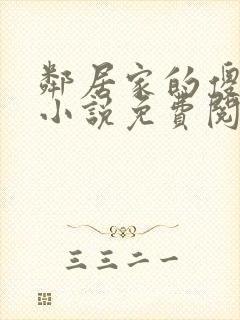 鄰居家的傻
小說免費閱
三三二一